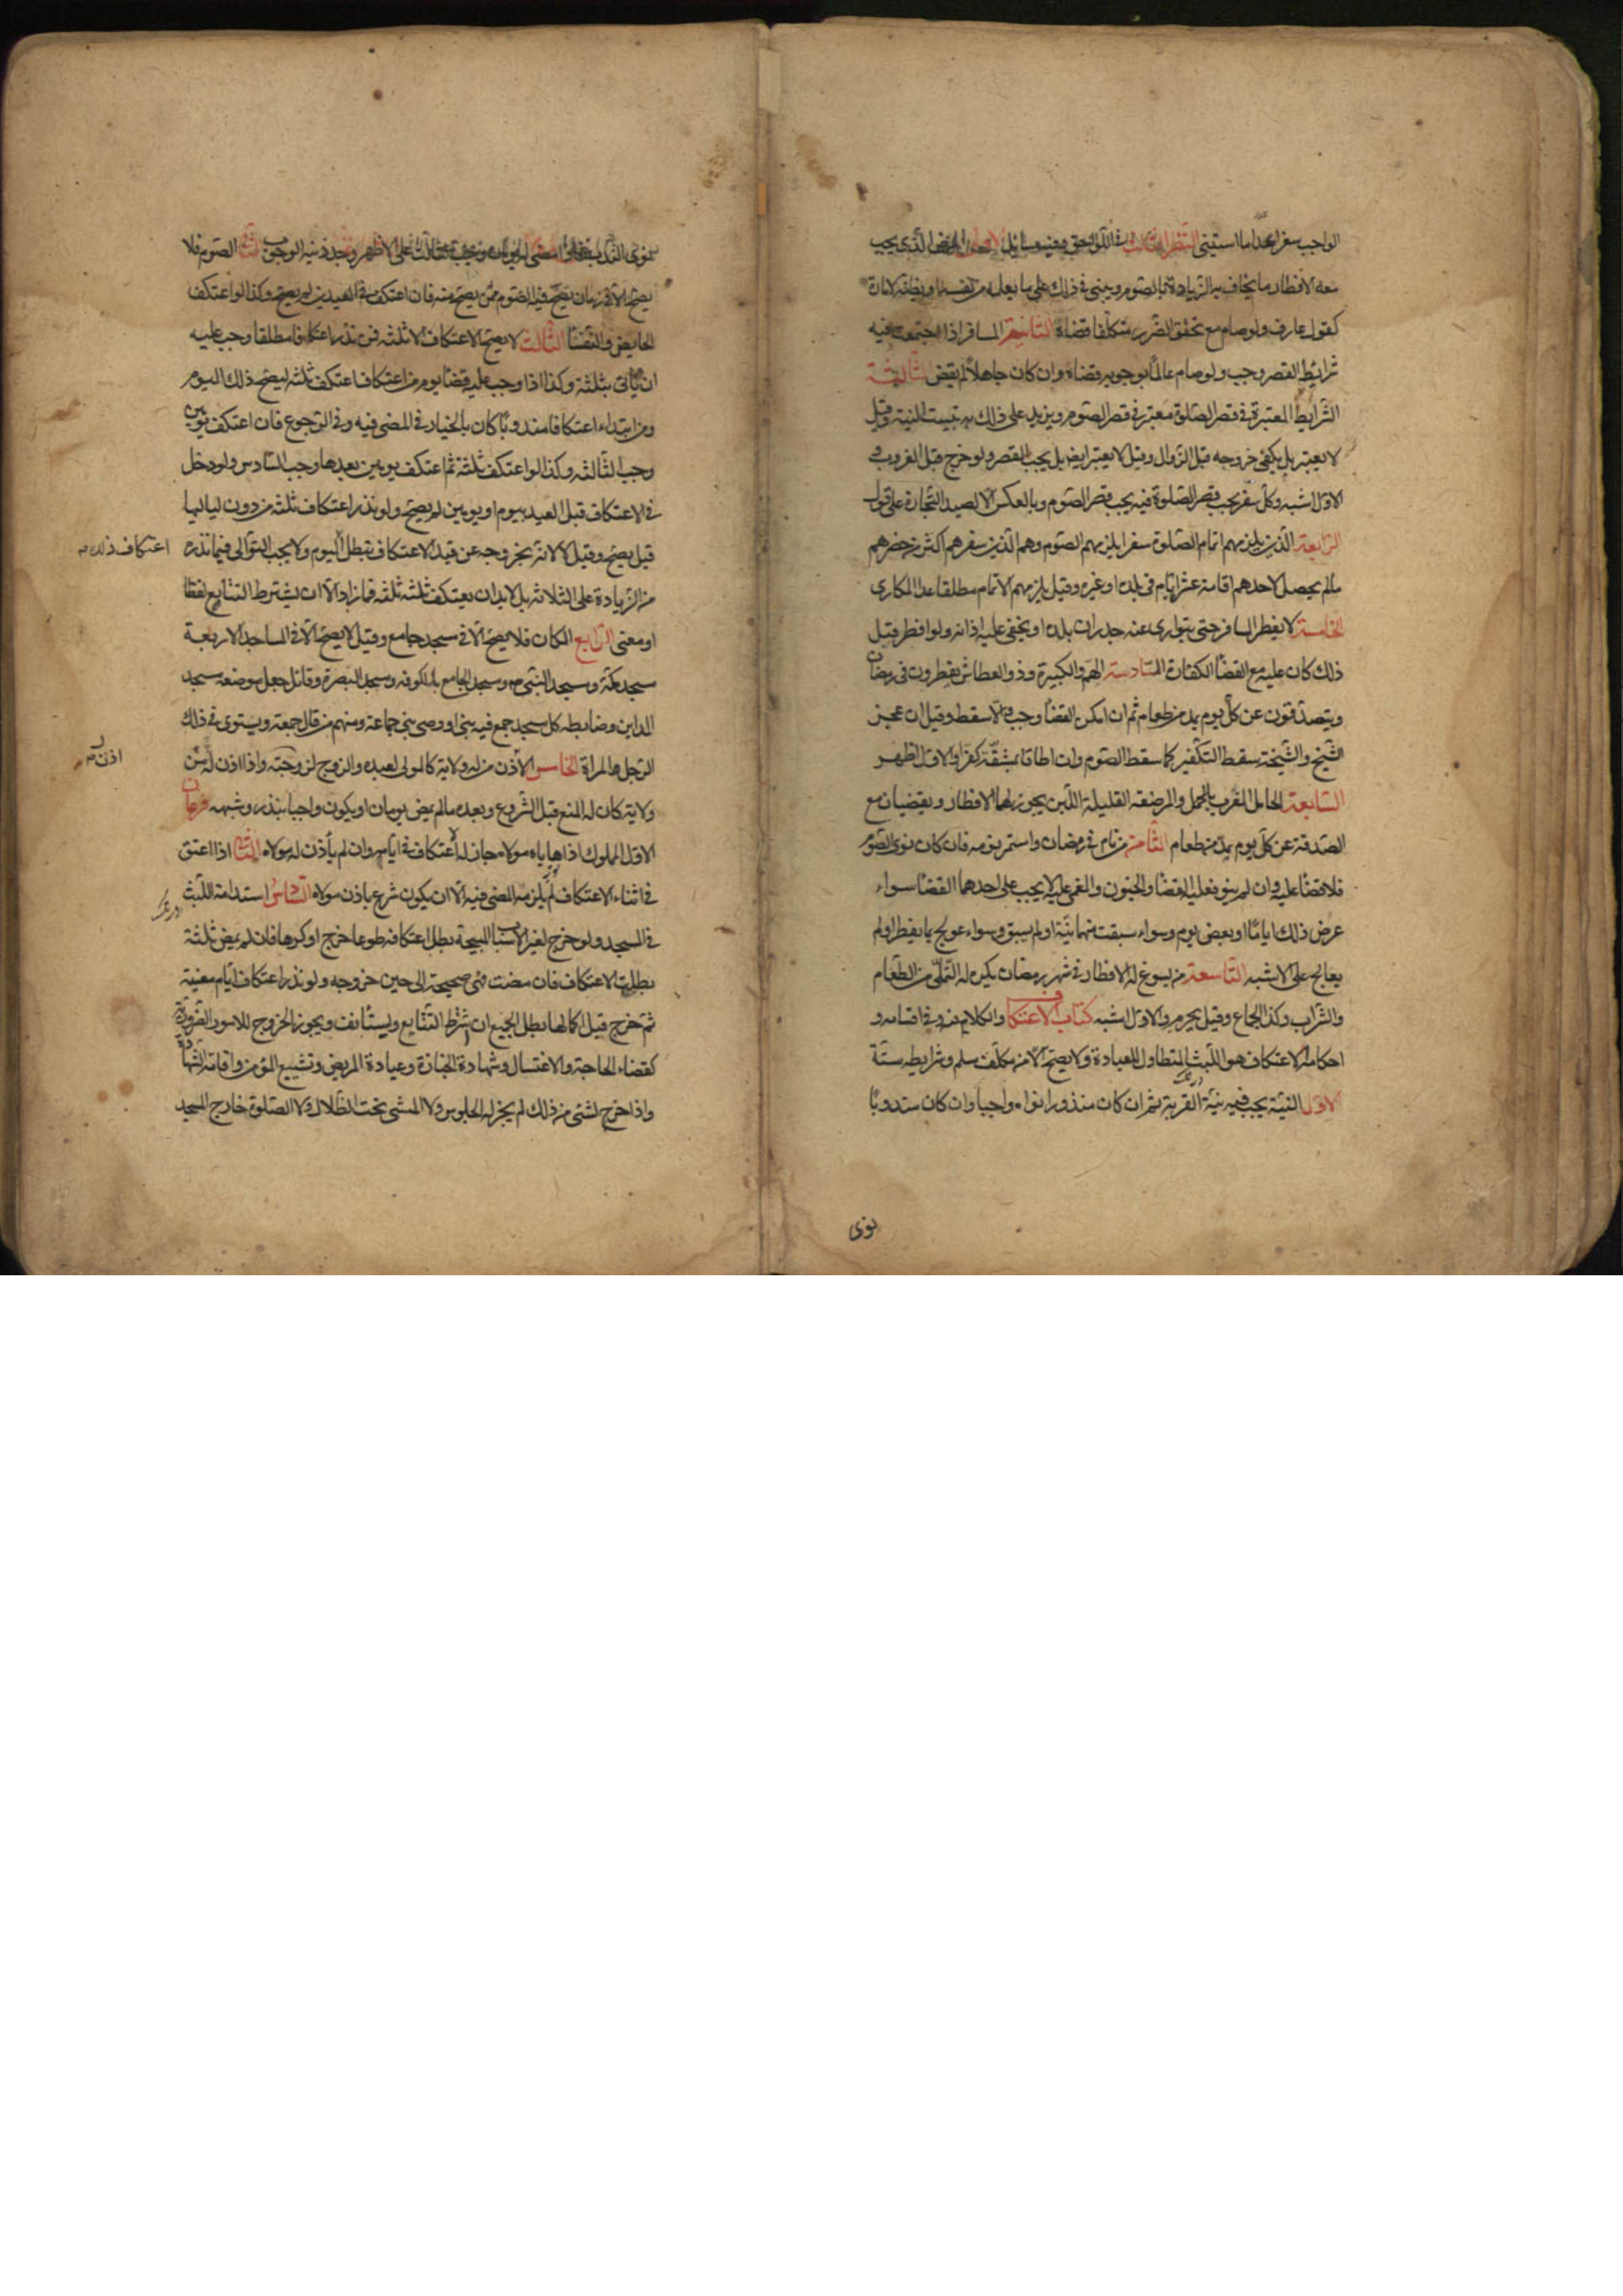 الواجب سفرا عدا ما استثنی النظر الثالث فی اللواحق وفیه مسایل الاولی المرض الذی یجب
معه الافطار ما یخاف به الزیادة بالصوم ویبنی فی ذلک علی ما یعلمه من نفسه او یظنه لامارة
کقول عارف ولو صام مع تحقق الضرر متکلفا قضاه الثانیة المسافر اذا اجتمعت فیه
شرایط القصر وجب ولو صام عالما بوجوبه قضاه وان کان جاهلا لم یقض الثالثة
الشرایط المعتبرة فی قصر الصلوة معتبرة فی قصر الصوم ویزید علی ذلک تبییت النیة وقیل
لا یعتبر بل یکفی خروجه قبل الزوال وقیل لا یعتبر ایض بل یجب القصر ولو خرج قبل الغروب و
الاول اشبه وکل سفر یجب قصر الصلوة فیه یجب قصر الصوم وبالعکس الا لصید التجارة علی قول
الرابعة الذین یلزمهم اتمام الصلوة سفرا یلزمهم الصوم وهم الذین سفرهم اکثر من حضرهم
مالم یحصل لاحدهم اقامة عشرة ایام فی بلده او غیره وقیل یلزمهم الاتمام مطلقا عدا المکاری
الخامسة لا یفطر المسافر حتی یتواری عنه جدران بلده او یخفی علیه اذانه ولو افطر قبل
ذلک کان علیه مع القضا الکفارة السادسة الهم والکبیرة وذو العطاش یفطرون فی رمضان
ویتصدقون عن کل یوم بمد من طعام ثم ان امکن القضا وجب والا سقط وقیل ان عجز
الشیخ والشیخة سقط التکفیر کما سقط الصوم وان اطاقا بمشقة کفرا والاول اظهر
السابعة الحامل المقرب والمرضعة القلیلة اللبن یجوز لهما الافطار ویقضیان مع
الصدقة عن کل یوم بمد من طعام الثامنة من نام فی رمضان واستمر نومه فان کان نوی الصوم
فلا قضا علیه وان لم ینو فعلیه القضا والمجنون والمغمی علیه لا یجب علی احدهما القضا سواء
عرض ذلک ایاما او بعض یوم وسواء سبقت منهما نیة او لم یسبق وسواء عولج بما یفطر او لم
یعالج علی الاشبه التاسعة من یسوغ له الافطار فی شهر رمضان یکره له التملی من الطعام
والشراب وکذا الجماع وقیل یحرم والاول اشبه کتاب الاعتکاف والکلام فیه وفی اقسامه و
احکامه الاعتکاف هو اللبث المتطاول للعبادة ولا یصح الا من مکلف مسلم وشرایطه ستة
الاول النیة یجب فیه نیة القربة ثم ان کان منذورا نواه واجبا وان کان مندوبا
نوی
نوی الندب فاذا مضی یومان وجب الثالث علی الاظهر وجدد نیة الوجوب الثانی الصوم فلا
یصح الا فی زمان یصح فیه الصوم ممن یصح منه فان اعتکف فی العیدین لم یصح وکذا لو اعتکف
الحایض والنفسا الثالث لا یصح الاعتکاف الا ثلثة فمن نذر اعتکافا مطلقا وجب علیه
ان یأتی بثلثة وکذا اذا وجب علیه قضا یوم من اعتکاف اعتکف ثلثة لیصح ذلک الیوم
ومن ابتداء اعتکافا مندوبا کان بالخیار فی المضی فیه وفی الرجوع فان اعتکف یومین
وجب الثالثة وکذا لو اعتکف ثلثة ثم اعتکف یومین بعدها وجب السادس ولو دخل
فی الاعتکاف قبل العید بیوم او یومین لم یصح ولو نذر اعتکاف ثلثة من دون لیالیها
قیل یصح وقیل لا لانه بخروجه عن قید الاعتکاف یبطل الیوم ولا یجب التوالی فیما نذره
اعتکاف ذلک
من الزیادة علی الثلاثة بل لابد ان یعتکف ثلثة ثلثة فما زاد الا ان یشترط التتابع لفظا
او معنی الرابع المکان فلا یصح الا فی مسجد جامع وقیل لا یصح الا فی المساجد الاربعة
مسجد مکة ومسجد النبی ومسجد الجامع بالکوفه ومسجد البصرة وقائل جعل موضعه مسجد
المداین وضابطه کل مسجد جمع فیه نبی او وصی نبی جماعة ومنهم من قال جمعة ویستوی فی ذلک
الرجل والمراة الخامس الاذن من له ولایة کالمولی لعبده والزوج لزوجته واذا اذن له من
اذن
ولایة کان له المنع قبل الشروع وبعده مالم یمض یومان او یکون واجبا بنذر وشبهه فرعان
الاول المملوک اذا هایاه مولاه جاز له الاعتکاف فی ایامه وان لم یأذن له مولاه الثانی اذا اعتق
فی اثناء الاعتکاف لم یلزمه المضی فیه الا ان یکون شرع باذن مولاه السادس استدامة اللبث
فی المسجد ولو خرج لغیر الاسباب المبیحة بطل اعتکافه طوعا خرج او کرها فان لم یمض ثلثة
بطل الاعتکاف فان مضت فهی صحیحة الی حین خروجه ولو نذر اعتکاف ایام معینة
ثم خرج قبل اکمالها بطل الجمیع ان شرط التتابع ویستأنف ویجوز الخروج للامور الضروریة
کقضاء الحاجة والاغتسال وشهادة الجنازة وعیادة المریض وتشییع المؤمن واقامة الشهادة
واذا خرج لشئ من ذلک لم یجز له الجلوس ولا المشی تحت الظلال ولا الصلوة خارج المسجد